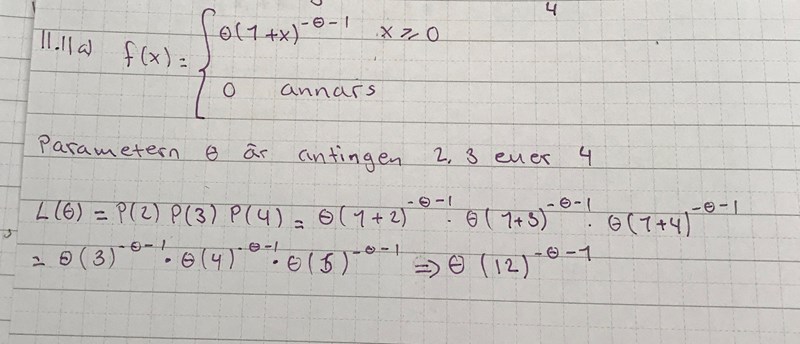 4
11.11a) f(x) = { θ(1+x)^{-θ-1} x ≥ 0
0 annars
Parametern θ är antingen 2, 3 eller 4
L(θ) = P(2) P(3) P(4) = θ(1+2)^{-θ-1} · θ(1+3)^{-θ-1} · θ(1+4)^{-θ-1}
= θ(3)^{-θ-1} · θ(4)^{-θ-1} · θ(5)^{-θ-1} ⇒ θ(12)^{-θ-1}